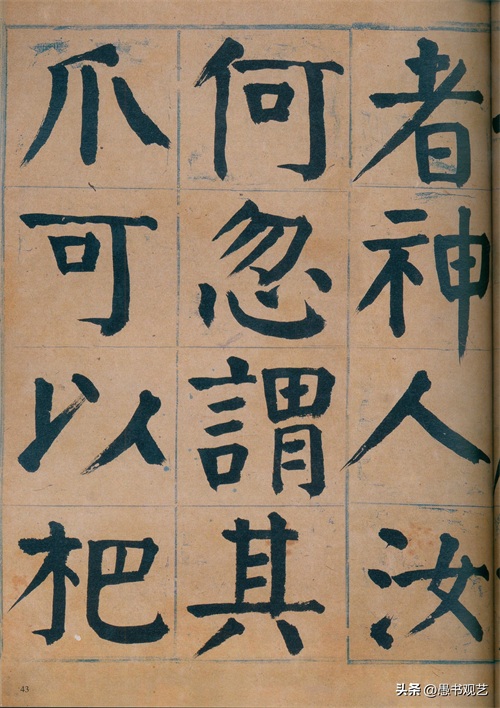 者神人汝
何忽謂其
爪可以杷
43
头条 @愚书观艺